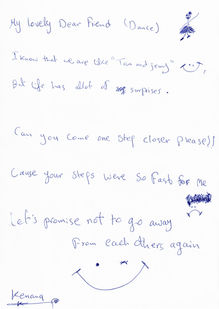 My Lovely Dear Friend (Dance)
I know that we are like "Tom and Jerry"
But Life has alot of surprises.
Can you come one step closer please!!
Cause your steps were so fast for me
Let's promise not to go away
from each others again
Kenana